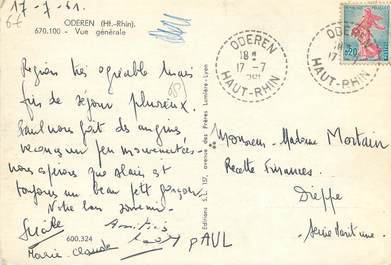 17-7-61.
ODEREN (Ht.-Rhin).
670.100 - Vue générale
Région très agréable mais
fin de séjour pluvieux.
Paul nous fait des angines
vacances un peu mouvementées
nous espérons que Alain est
toujours un beau petit garçon.
Notre bon souvenir.
Amitiés
PAUL
Marie-Claude
600.324
Editions S.L. 157, avenue des Frères Lumière-Lyon
ODEREN
18H
17-7
HAUT-RHIN
ODEREN
17
HAUT-RHIN
0,20
Monsieur - Madame Mortain
Recette Finances
Dieppe
Seine Maritime